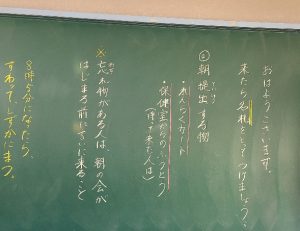 おはようございます。
来たら名札をとってつけましょう。
朝提出する物
ていしゅつ
・れんらくノート
・保健室からのふうとう
(持って来た人は)
※忘れ物がある人は、朝の会が
はじまる前に言いに来ること
8時5分になったら、
すわって、しずかにまつ。